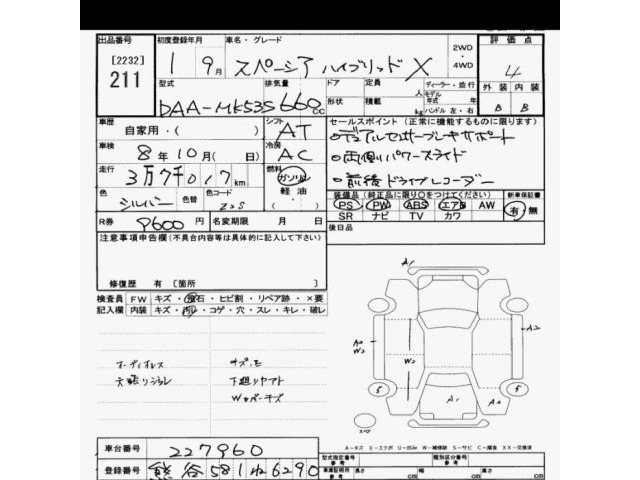 出品番号 初度登録年月 車名・グレード 2WD ・ 4WD 評価点
[2232]
211
1 9月 スペーシア ハイブリッド X 4
型式 排気量 ドア 定員 人 ディーラー・並行 外装 内装
DAA-MK53S 660cc 形状 積載 kg モデル 年式 年 ハンドル 左・右 B B
車歴 自家用・( ) シフト AT セールスポイント(正常に機能するものに限ります)
・デュアルセンサーブレーキサポート
車検 8年10月(日) 冷房 AC ・両側パワースライド
走行 3万7千017km 燃料 ガソリン・軽油・ ・前後ドライブレコーダー
色 シルバー 色替 色コード Z2S 装備品(純正品に限り○をつけてください) 新車保証書
PS PW ABS エアB AW 有・無
SR ナビ TV カワ
R券 9600円 名変期限 月 日 後日品
注意事項申告欄(不具合内容等は具体的に記入して下さい)
修復歴 有[箇所 ]
検査員 FW キズ・飛石・ヒビ割・リペア跡・×要
記入欄 内装 キズ・汚レ・コゲ・穴・スレ・キレ・破レ
A1
A2
W2
A2
W2
S
S
A1
A2
スペア
オーディオレス サスペ、モ
天張りシミ 下廻りサビ
Wカバーキズ
A-キズ E-エクボ U-凹み W-補修跡 S-サビ C-腐食 XX-交換済
車台番号 227960 型式指定番号 参考 類別区分番号 参考
登録番号 熊谷 581 ね 6290 車庫証明用 参考 長さ cm 幅 cm 高さ cm